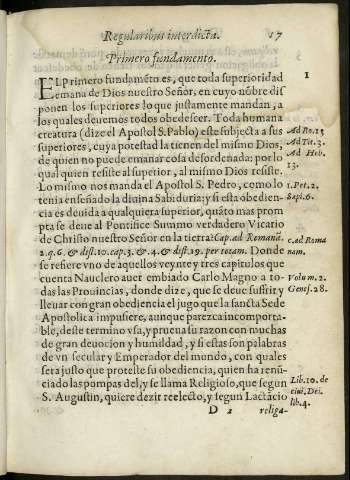 Regularibus interdicta. 17
Primero fundamento.
EL primero fundamẽto es, que toda superioridad 1
emana de Dios nuestro Señor, en cuyo nõbre dis
ponen los superiores lo que justamente mandan, a
los quales deuemos todos obedescer. Toda humana
creatura (dize el Apostol S. Pablo) este subjecta a sus Ad Ro. 13
superiores, cuya potestad la tienen del mismo Dios, Ad Tit. 3.
de quien no puede emanar cosa desordeñada; por lo Ad Heb.
qual quien resiste al superior, al mismo Dios resiste. 13.
Lo mismo nos manda el Apostol S. Pedro, como lo 1. Pet. 2.
tenia enseñado la diuina Sabiduria; y si esta obedien- Sapi. 6.
cia es deuida a qualquiera superior, quãto mas prom
pta se deue al Pontifice Summo verdadero Vicario
de Christo nuestro Señor en la tierra? Cap. ad Romanã. c. ad Roma
2. q. 6. & dist. 10. cap. 3. & 4. & dist. 19. per totam. Donde nam.
se refiere vno de aquellos veynte y tres capitulos que
cuenta Nauclero auer embiado Carlo Magno a to- Volum. 2.
das las Prouincias, donde dize, que se deue suffrir y Genes. 28.
lleuar con gran obediencia el jugo que la sancta Sede
Apostolica impusiere, aunque parezca incomporta-
ble, deste termino vsa, y prueua su razon con muchas
de gran deuocion y humildad, y si estas son palabras
de vn secular y Emperador del mundo, con quales
sera justo que proteste su obediencia, quien ha renũ-
ciado las pompas del, y se llama Religioso, que segun Lib. 10. de
S. Augustin, quiere dezir reelecto, y segun Lactãcio ciui. Dei.
lib. 4.
D 2 religa-